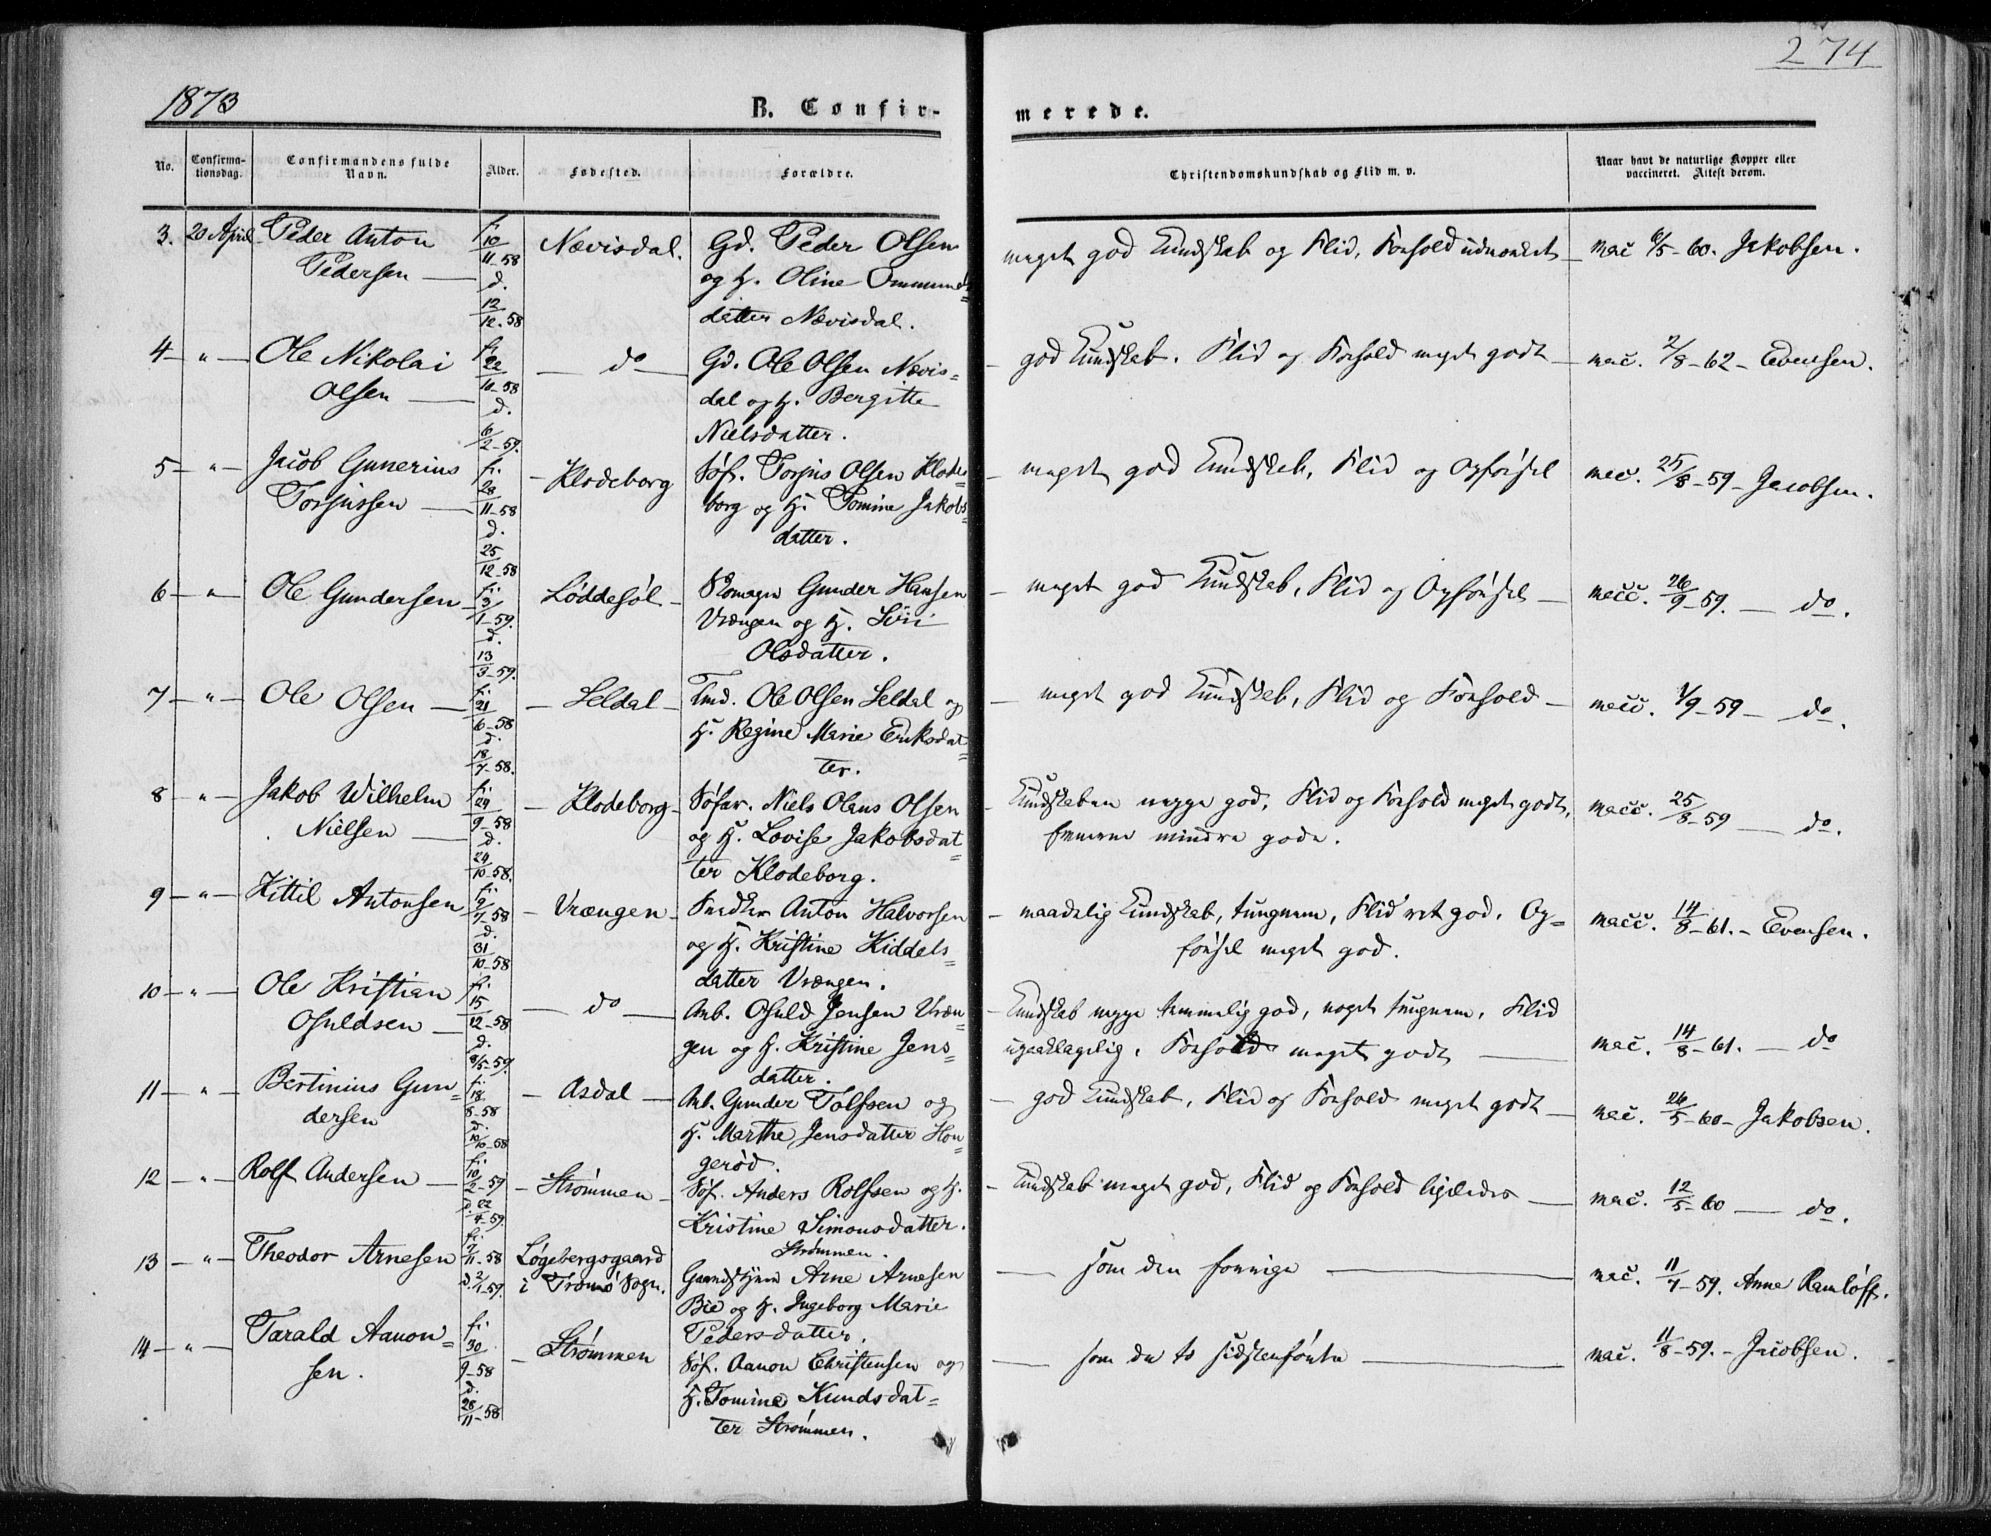 274
1873
B. Confir-
merede.
No.
Confirma-
tionsdag.
Confirmandens fulde
Navn.
Alder.
Fødested.
Forældre.
Christendomskundskab og Flid m. v.
Naar havt de naturlige Kopper eller
vaccineret. Attest derom.
3. 20 April Peder Anton Pedersen — f. 10/11-58 d. 12/12-58 Nævisdal. Gd. Peder Olsen
og H. Oline Ommunds=
datter Nævisdal.
meget god Kundskab og Flid, Forhold udmærket — vac 6/5-60. Jakobsen.
4 — " — Ole Nikolai Olsen — f. 22/10-58 d. 6/2-59. — do — Gd. Ole Olsen Nævis=
dal og H. Bergitte
Nielsdatter.
— god Kundskab. Flid og Forhold meget godt — vac. 2/8-62 - Evensen.
5 — " — Jacob Gunerius Torjussen — f. 28/11-58 d. 25/12-58 - Klodeborg Søf. Torjus Olsen Klode=
borg og H. Tomine Jakobs=
datter.
— meget god Kundskab, Flid og Opførsel vac. 25/8-59 - Jacobsen.
6 — " — Ole Gundersen — f. 3/1-59. d. 13/3-59. Løddesøl - Skomager Gunder Hansen
Vrængen og H. Siri
Olsdatter.
— meget god Kundskab, Flid og Opførsel — vacc. 26/9-59. — do.
7 — " — Ole Olsen — f. 21/6-58 d. 18/7-58. - Seldal - Tmd. Ole Olsen Seldal og
H. Regine Marie Eriksdat=
ter.
— meget god Kundskab, Flid og Forhold — vacc. 1/9-59 - do.
8 — " — Jakob Wilhelm Nielsen — f. 29/9-58 d. 24/10-58. - Klodeborg - Søfar. Niels Olaus Olsen
og H. Lovise Jakobsdat=
ter Klodeborg.
— Kundskaben negge god, Flid og Forhold meget godt,
Evnerne mindre gode. vacc. 25/8-59 — do.
9 — " — Kittil Antonsen f. 9/7-58 d. 31/10-58 - Vrængen - Snedker Anton Halvorsen
og H. Kristine Kiddels=
datter Vrængen.
— maadelig Kundskab, tungnem, Flid ret god. Op=
førsel meget god. vacc. 14/8-61. - Evensen.
10 — " — Ole Kristian Osuldsen — f. 15/12-58 d. 8/5-59. — do — Arb. Osuld Jensen Vræn=
gen og H. Kristine Jens=
datter.
— Kundskab negge temmelig god, noget tungnem, Flid
upaaklagelig, Forhold meget godt — vac. 14/8-61. — do
11 — " Bertinius Gun=
dersen f. 18/8-58 d. 10/10-58 - Asdal — Arb. Gunder Tolfsen og
H. Marthe Jensdatter Hon
gerød.
— god Kundskab, Flid og Forhold meget godt — vac. 26/5-60 - Jakobsen.
12 — " — Rolf Andersen — f. 10/2-59 d. 22/4-59. - Strømmen - Søf. Anders Rolfsen og H.
Kristine Simonsdatter.
Strømmen.
— Kundskab meget god, Flid og Forhold ligeledes — vac. 12/5-60 — do.
13 — " — Theodor Arnesen f. 7/11-58 d. 2/1-59. Løgebergsgaard
i Tromø Sogn. Gaardstyrer Arne Arnesen
Bie og H. Ingeborg Marie
Pedersdatter.
— som den forrige — vac. 11/7-59. Anne Ramløff.
14 — " — Tarald Aanon=
sen. f. 30/9-58 d. 28/11-58 - Strømmen Søf. Aanon Christensen og
H. Tomine Knudsdat=
ter Strømmen.
— som de to sidstanførte — vac. 11/8-59. - Jacobsen.